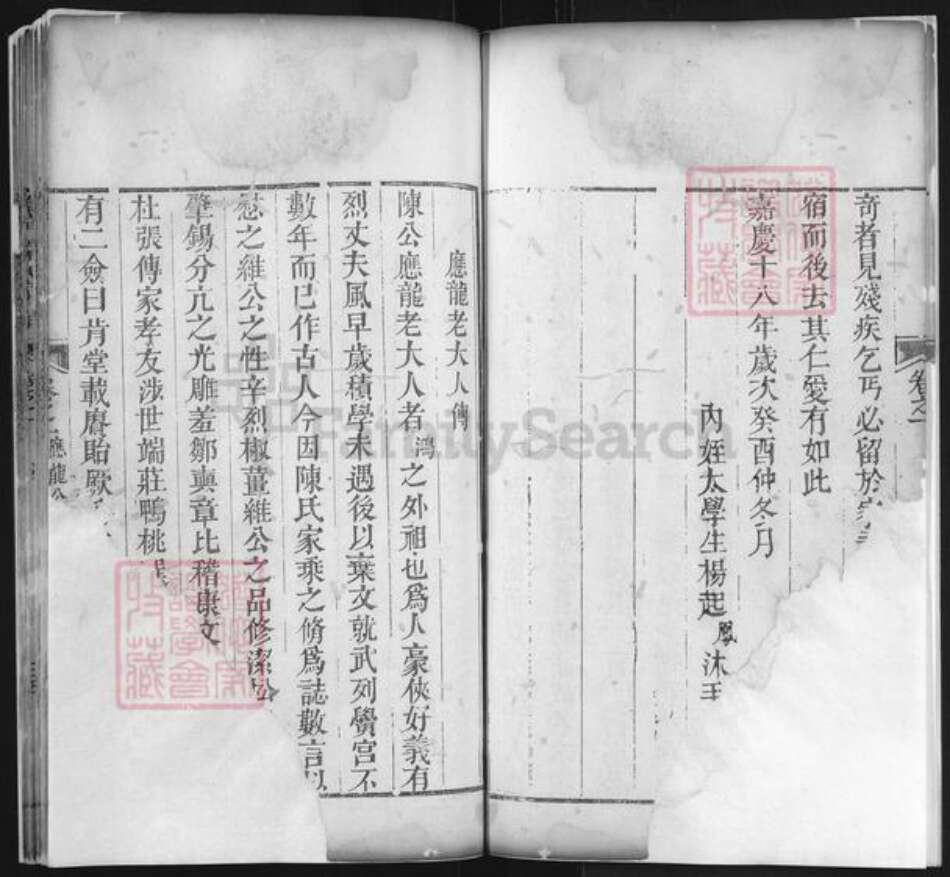 卷之一
奇者見殘疾乞丐必留於家
宿而後去其仁愛有如此
嘉慶十八年歲次癸酉仲冬月
內姪太學生楊起鳳沐手
應龍老大人傳
陳公應龍老大人者鴻之外祖也爲人豪俠好義有
烈丈夫風早歲積學未遇後以棄文就武列黌宮不
數年而已作古人今因陳氏家乘之脩爲誌數言以
慰之維公之性辛烈椒薑維公之品修潔
肇錫分亢之光雕羞鄒奭章比稽康文
杜張傳家孝友涉世端莊鴨桃
有二僉曰肯堂載賡貽厥
卷之一 應龍公
FamilySearch